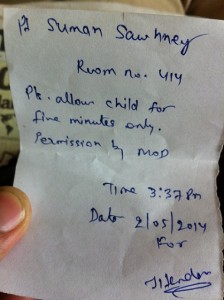 Pt Suman Sawhney
Room no. 414
Pls. allow child for
five minutes only.
Permission by MOD
Time 3:37 Pm
Date 2/05/2014
For
Jitendra